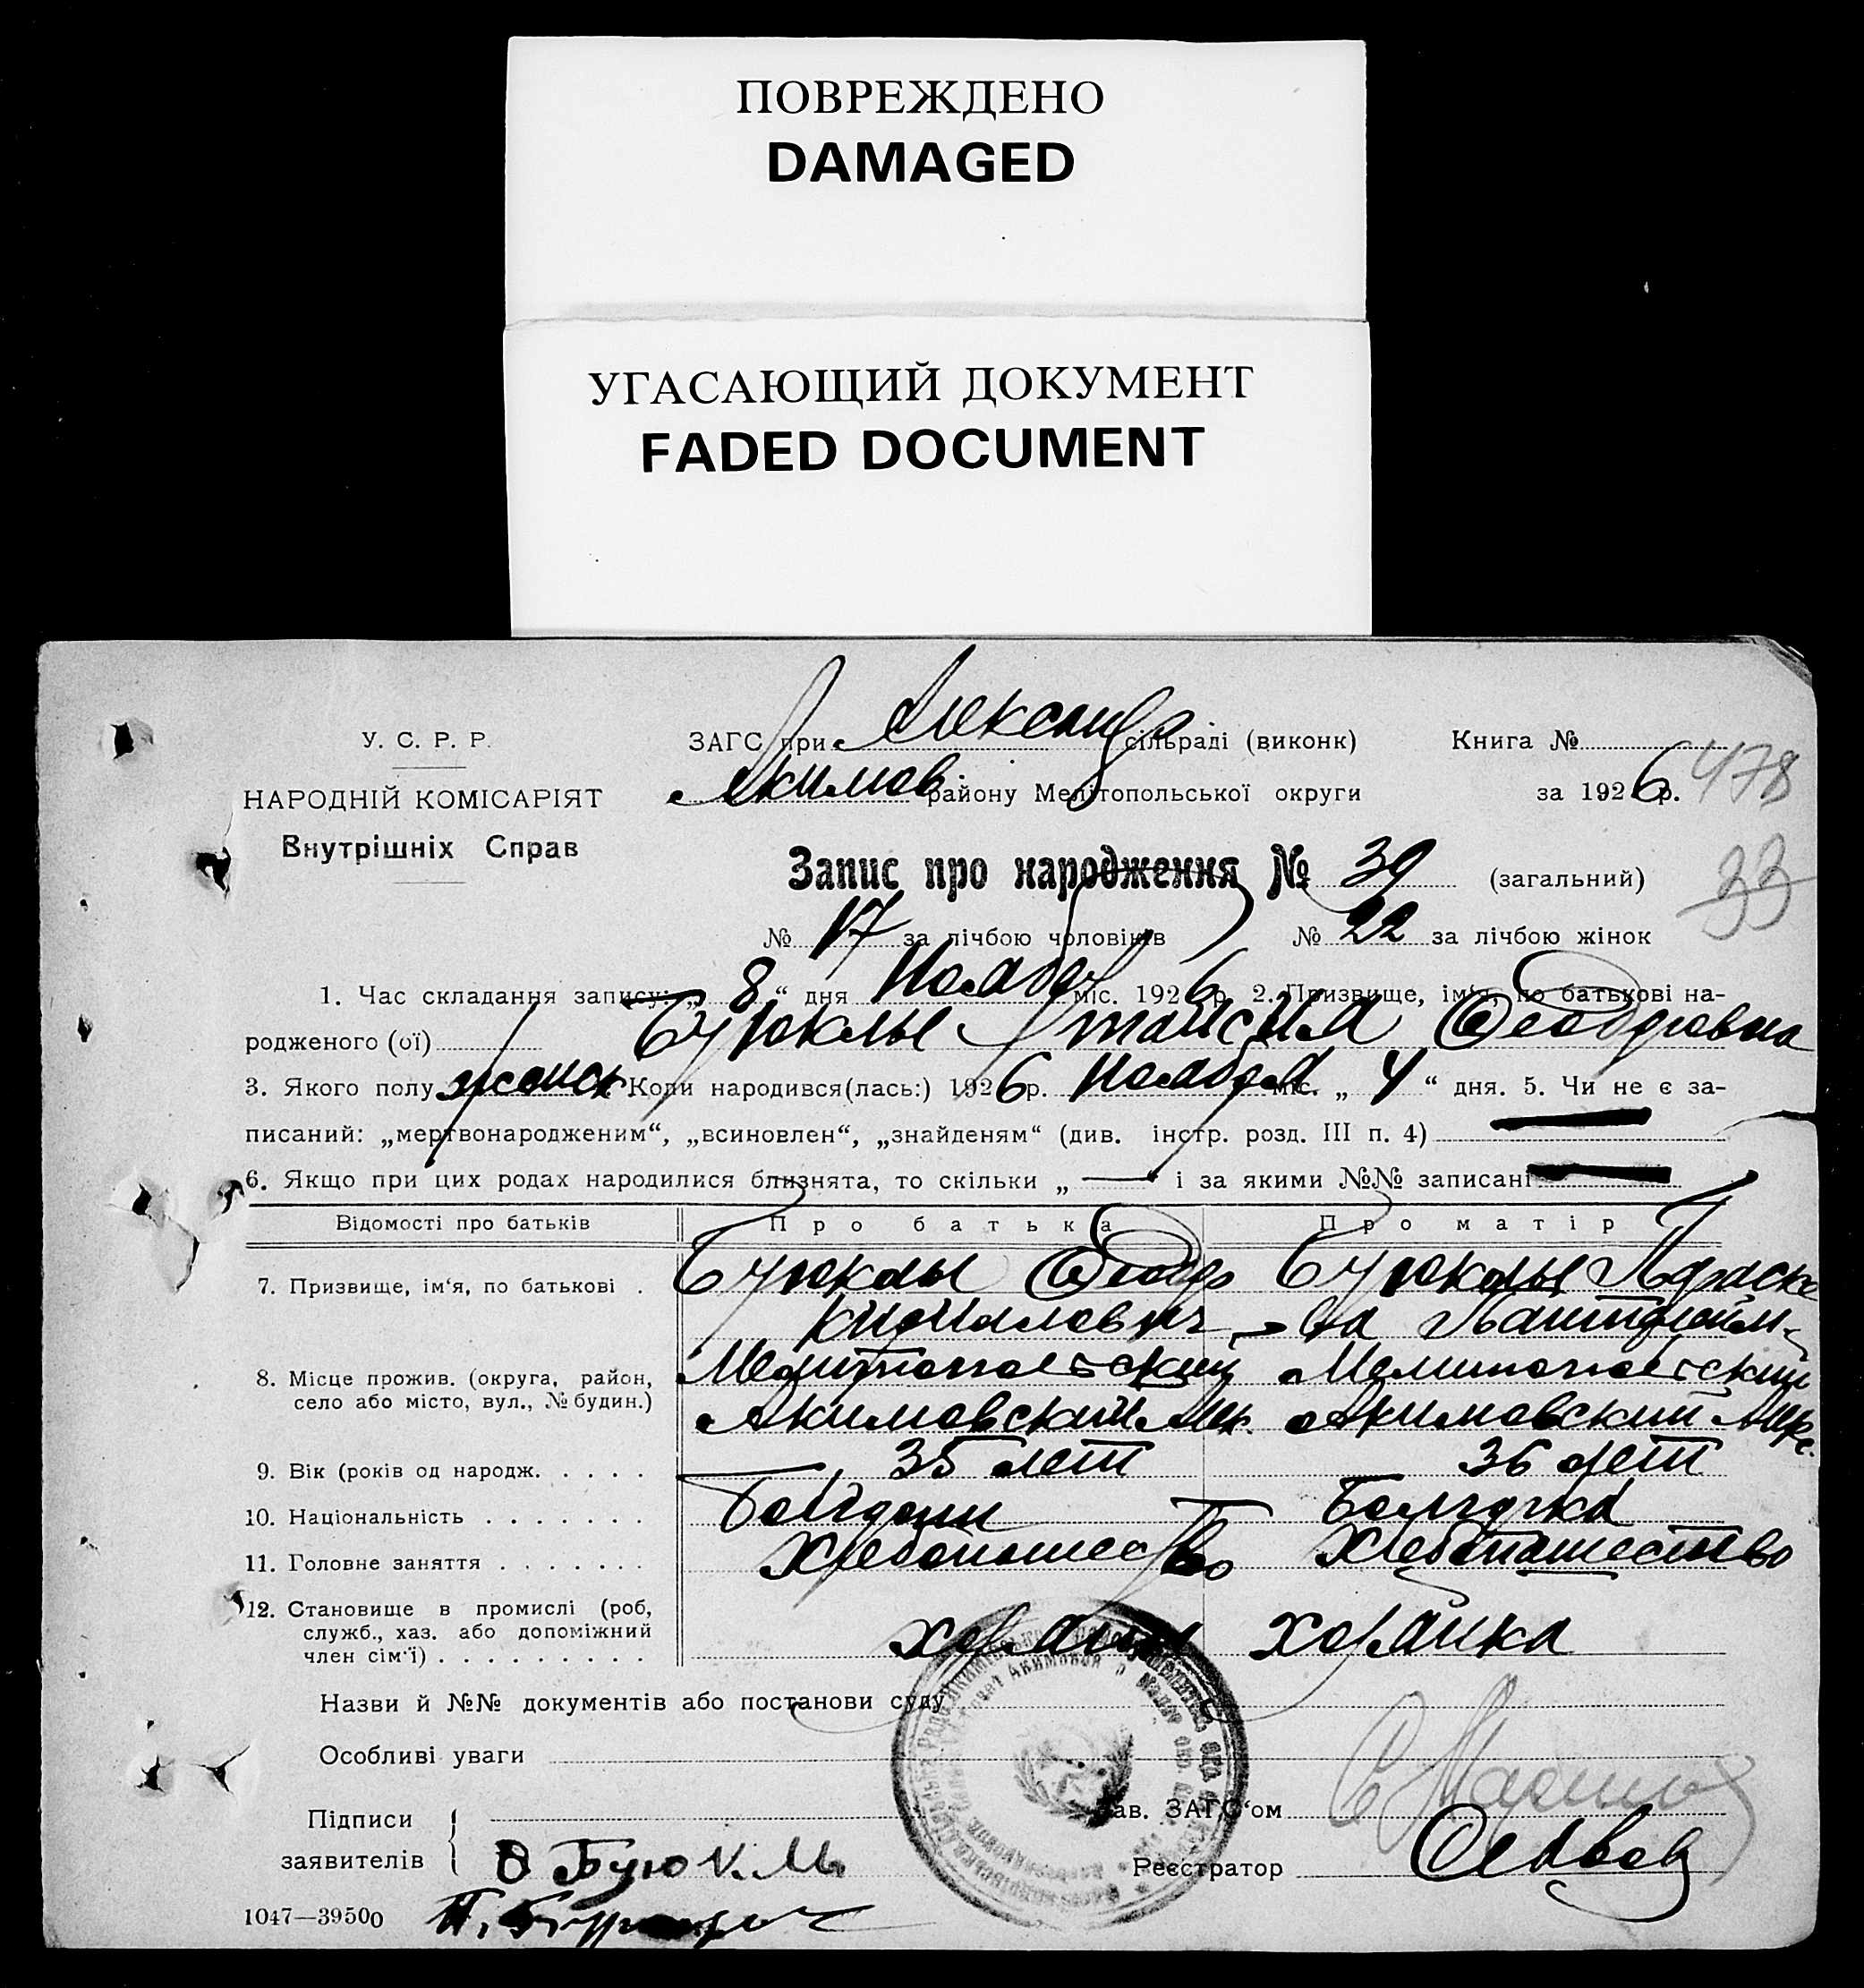 ПОВРЕЖДЕНО
DAMAGED
УГАСАЮЩИЙ ДОКУМЕНТ
FADED DOCUMENT
У. С. Р. Р.
НАРОДНІЙ КОМІСАРІЯТ
Внутрішніх Справ
ЗАГС при Александр сільраді (виконк) Книга №
Акимов району Мелітопольської округи за 1926 р. 478
Запис про народження № 39 (загальний) 33
№ 17 за лічбою чоловіків № 22 за лічбою жінок
1. Час складання запису: „ 8 “ дня Ноября міс. 1926 р. 2. Призвище, ім'я, по батькові на-
родженого (ої) Буюклы Таисия Феодоровна
3. Якого полу женск Коли народився(лась:) 1926 р. Ноября міс. „ 4 “ дня. 5. Чи не є за-
писаний: „мертвонародженим“, „всиновлен“, „знайденям“ (див. інстр. розд. III п. 4) —
6. Якщо при цих родах народилися близнята, то скільки „ — “ і за якими №№ записані —
Відомості про батьків Про батька Про матір
7. Призвище, ім'я, по батькові . Буюклы Феодр Буюклы Праске
Кирилович ва Пантелейм-
8. Місце прожив. (округа, район, Мелитопольский Мелитопольский
село або місто, вул., № будин.) Акимовский Акимовский
9. Вік (років од народж. . . . . 35 лет 36 лет
10. Національність . . . . . . . Болгарин Болгарка
11. Головне заняття . . . . . . . Хлебопашество Хлебопашество
12. Становище в промислі (роб,
служб., хаз. або допоміжний
член сім'ї) . . . . . . . . . хозяин хозяйка
Назви й №№ документів або постанови суду
Особливі уваги
Підписи Зав. ЗАГС'ом
заявителів Ф Буюклы Реєстратор
1047—39500